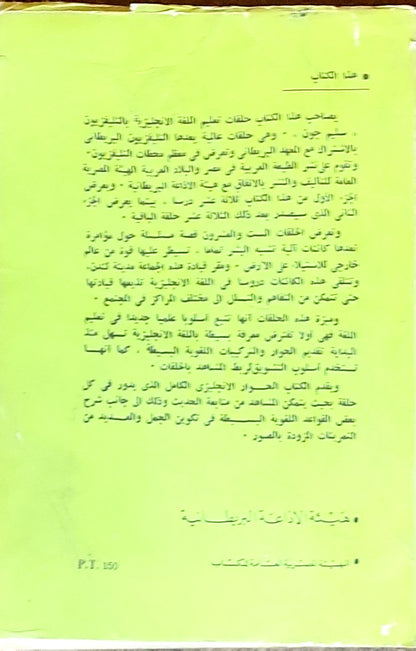 هذا الكتاب
يصاحب هذا الكتاب حلقات تعليم اللغة الانجليزية بالتليفزيون
« سليم جون » - وهى حلقات عالمية يعدها التليفزيون البريطانى
بالاشتراك مع المعهد البريطانى وتعرض فى معظم محطات التليفزيون -
وتقوم على نشر الطبعة العربية فى مصر والبلاد العربية الهيئة المصرية
العامة للتأليف والنشر بالاتفاق مع هيئة الاذاعة البريطانية - ويعرض
الجزء الأول من هذا الكتاب ثلاثة عشر درسا ، بينما يعرض الجزء
الثانى الذى سيصدر بعد ذلك الثلاثة عشر حلقة الباقية -
وتعرض الحلقات الست والعشرون قصة مسلسلة حول مؤامرة
تعدها كائنات آلية تشبه البشر تماما - تسيطر عليها قوة من عالم
خارجى للاستيلاء على الأرض - ومقر قيادة هذه الجماعة مدينة لندن -
وتتلقى هذه الكائنات دروسا فى اللغة الانجليزية تذيعها قيادتها
حتى تتمكن من التفاهم والتسلل الى مختلف المراكز فى المجتمع -
وميزة هذه الحلقات أنها تتبع أسلوبا علميا جديدا فى تعليم
اللغة فهى أولا تفترض معرفة بسيطة باللغة الانجليزية تسهل منذ
البداية تقديم الحوار والتركيبات اللغوية البسيطة ، كما أنها
تستخدم أسلوب التشويق لربط المشاهد بالحلقات -
ويقدم الكتاب الحوار الانجليزى الكامل الذى يدور فى كل
حلقة بحيث يتمكن المشاهد من متابعة الحديث وذلك الى جانب شرح
بعض القواعد اللغوية البسيطة فى تكوين الجمل والعديد من
التمرينات المزودة بالصور -
هيئة الاذاعة البريطانية
الهيئة المصرية العامة للكتاب
P.T. 150